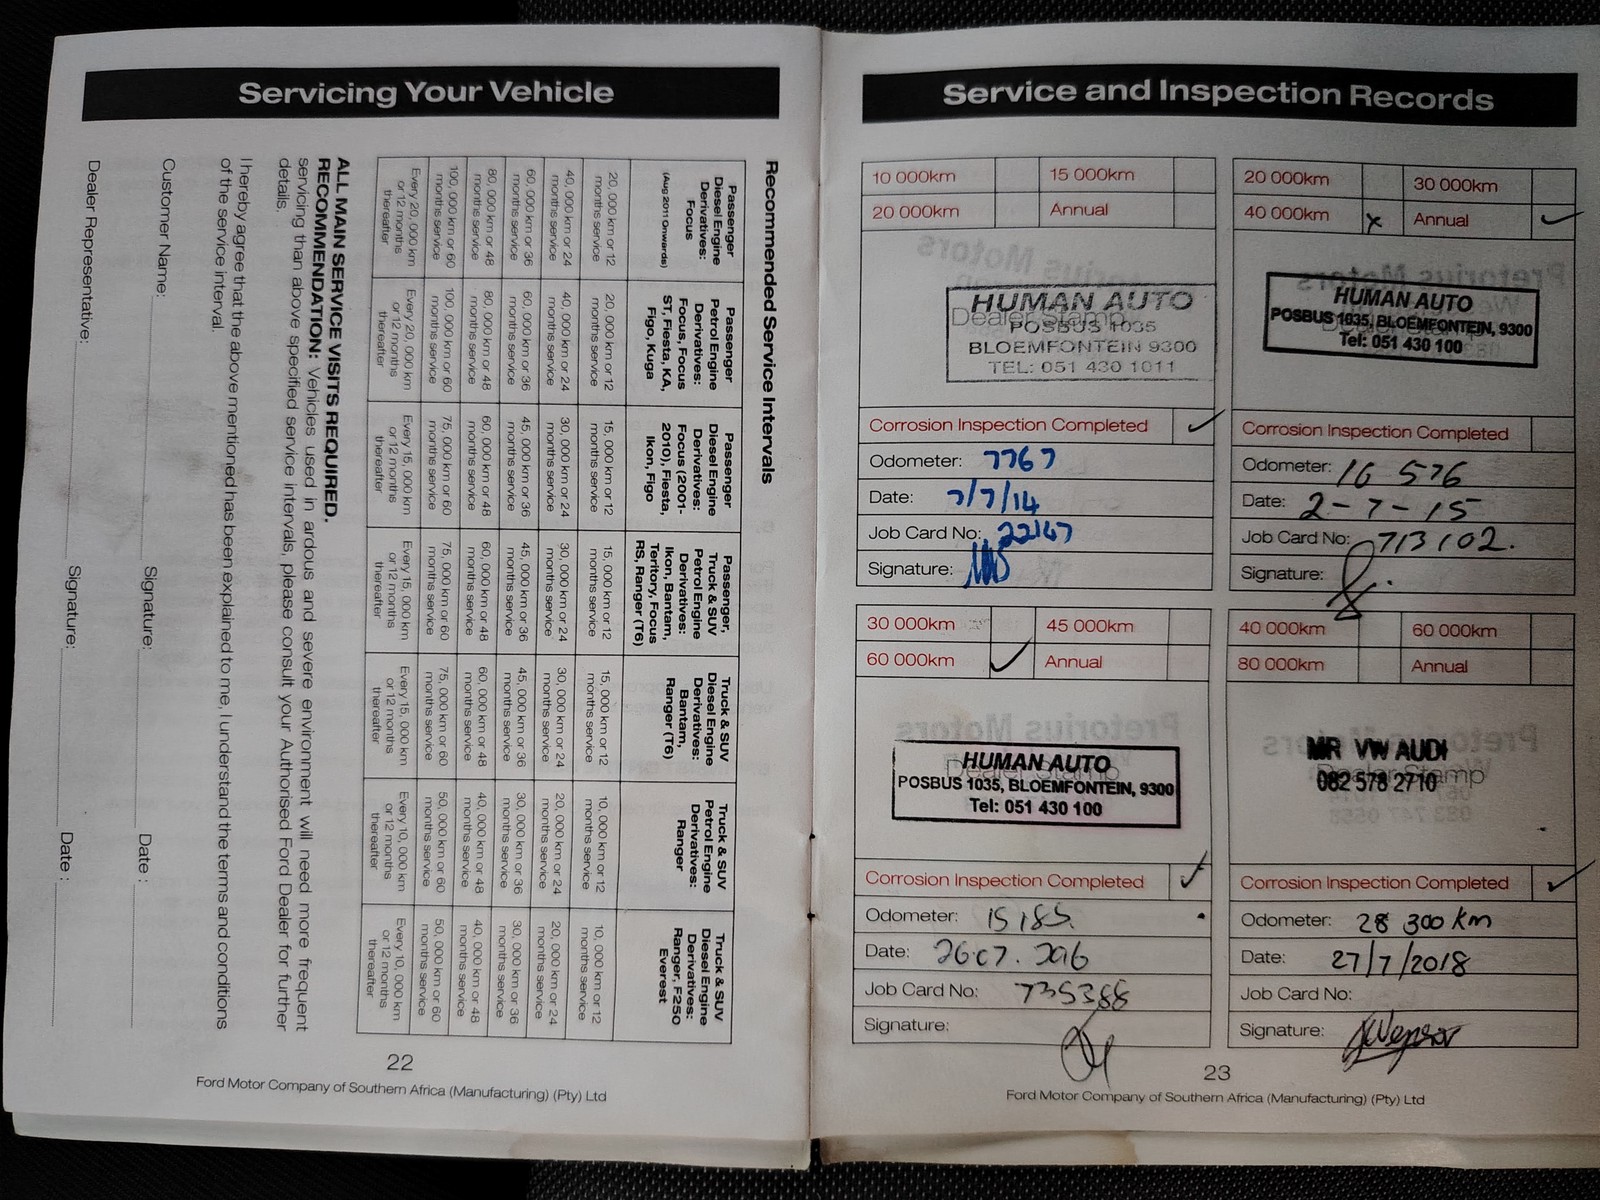 Servicing Your Vehicle
Recommended Service Intervals
Passenger Diesel Engine Derivatives: Focus (Aug 2011 Onwards)
20, 000 km or 12 months service
40, 000 km or 24 months service
60, 000 km or 36 months service
80, 000 km or 48 months service
100, 000 km or 60 months service
Every 20, 000 km or 12 months thereafter
Passenger Petrol Engine Derivatives: Focus, Focus ST, Fiesta, KA, Figo, Kuga
20, 000 km or 12 months service
40, 000 km or 24 months service
60, 000 km or 36 months service
80, 000 km or 48 months service
100, 000 km or 60 months service
Every 20, 000 km or 12 months thereafter
Passenger Diesel Engine Derivatives: Focus (2001-2010), Fiesta, Ikon, Figo
15, 000 km or 12 months service
30, 000 km or 24 months service
45, 000 km or 36 months service
60, 000 km or 48 months service
75, 000 km or 60 months service
Every 15, 000 km or 12 months thereafter
Passenger, Truck & SUV Petrol Engine Derivatives: Ikon, Bantam, Territory, Focus RS, Ranger (T6)
15, 000 km or 12 months service
30, 000 km or 24 months service
45, 000 km or 36 months service
60, 000 km or 48 months service
75, 000 km or 60 months service
Every 15, 000 km or 12 months thereafter
Truck & SUV Diesel Engine Derivatives: Bantam, Ranger (T6)
15, 000 km or 12 months service
30, 000 km or 24 months service
45, 000 km or 36 months service
60, 000 km or 48 months service
75, 000 km or 60 months service
Every 15, 000 km or 12 months thereafter
Truck & SUV Petrol Engine Derivatives: Ranger
10, 000 km or 12 months service
20, 000 km or 24 months service
30, 000 km or 36 months service
40, 000 km or 48 months service
50, 000 km or 60 months service
Every 10, 000 km or 12 months thereafter
Truck & SUV Diesel Engine Derivatives: Ranger, F250 Everest
10, 000 km or 12 months service
20, 000 km or 24 months service
30, 000 km or 36 months service
40, 000 km or 48 months service
50, 000 km or 60 months service
Every 10, 000 km or 12 months thereafter
ALL MAIN SERVICE VISITS REQUIRED.
RECOMMENDATION: Vehicles used in ardous and severe environment will need more frequent
servicing than above specified service intervals, please consult your Authorised Ford Dealer for further
details.
I hereby agree that the above mentioned has been explained to me, I understand the terms and conditions
of the service interval.
Customer Name: Signature: Date :
Dealer Representative: Signature: Date :
22
Ford Motor Company of Southern Africa (Manufacturing) (Pty) Ltd
Service and Inspection Records
10 000km 15 000km
20 000km Annual
Dealer Stamp
HUMAN AUTO
POSBUS 1035
BLOEMFONTEIN 9300
TEL: 051 430 1011
Corrosion Inspection Completed
Odometer: 7767
Date: 7/7/14
Job Card No: 22147
Signature:
20 000km 30 000km
40 000km x Annual
HUMAN AUTO
POSBUS 1035, BLOEMFONTEIN, 9300
Tel: 051 430 100
Corrosion Inspection Completed
Odometer: 16 576
Date: 2-7-15
Job Card No: 713102.
Signature:
30 000km 45 000km
60 000km Annual
Dealer Stamp
HUMAN AUTO
POSBUS 1035, BLOEMFONTEIN, 9300
Tel: 051 430 100
Corrosion Inspection Completed
Odometer: 15185
Date:
Job Card No: 735388
Signature:
40 000km 60 000km
80 000km Annual
Dealer Stamp
MR VW AUDI
082 578 2710
Corrosion Inspection Completed
Odometer: 28 300 km
Date: 27/7/2018
Job Card No:
Signature:
23
Ford Motor Company of Southern Africa (Manufacturing) (Pty) Ltd